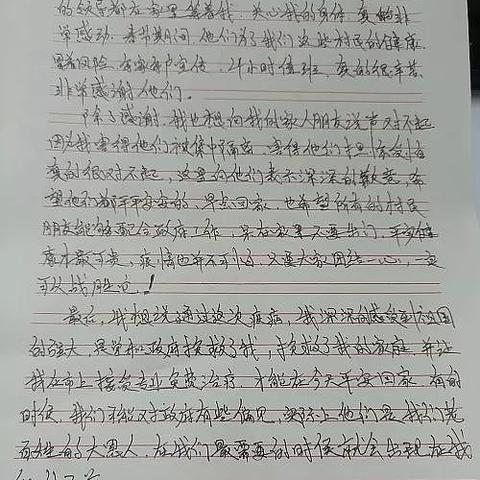 的领导都在那里等着我,关心我的身体,真的非
常感动。春节期间,他们为了我们这些村民的健康,
冒着风险,去家家户户宣传,24小时值班,真的很辛苦,
非常感谢他们。
除了感谢,我也想向我的家人朋友说声对不起
因为我害得他们被集中隔离,害得他们担惊受怕
真的很对不起,这里向他们表示深深的歉意,希
望他们都平平安安的,早点回家,也希望所有的村民
朋友能够配合政府工作,呆在家里不要出门,平安健
康才最可贵,疫情也并不可怕,只要大家团结一心,一定
可以战胜它!
最后,我想说通过这次疫病,我深深的感受到祖国
的强大,是党和政府拯救了我,拯救了我的家庭,并让
我在市上接受专业免费治疗,才能在今天平安回家,有的
时候,我们可能对政府有些偏见,实际上他们是我们老
百姓的大恩人,在我们最需要的时候就会出现在我